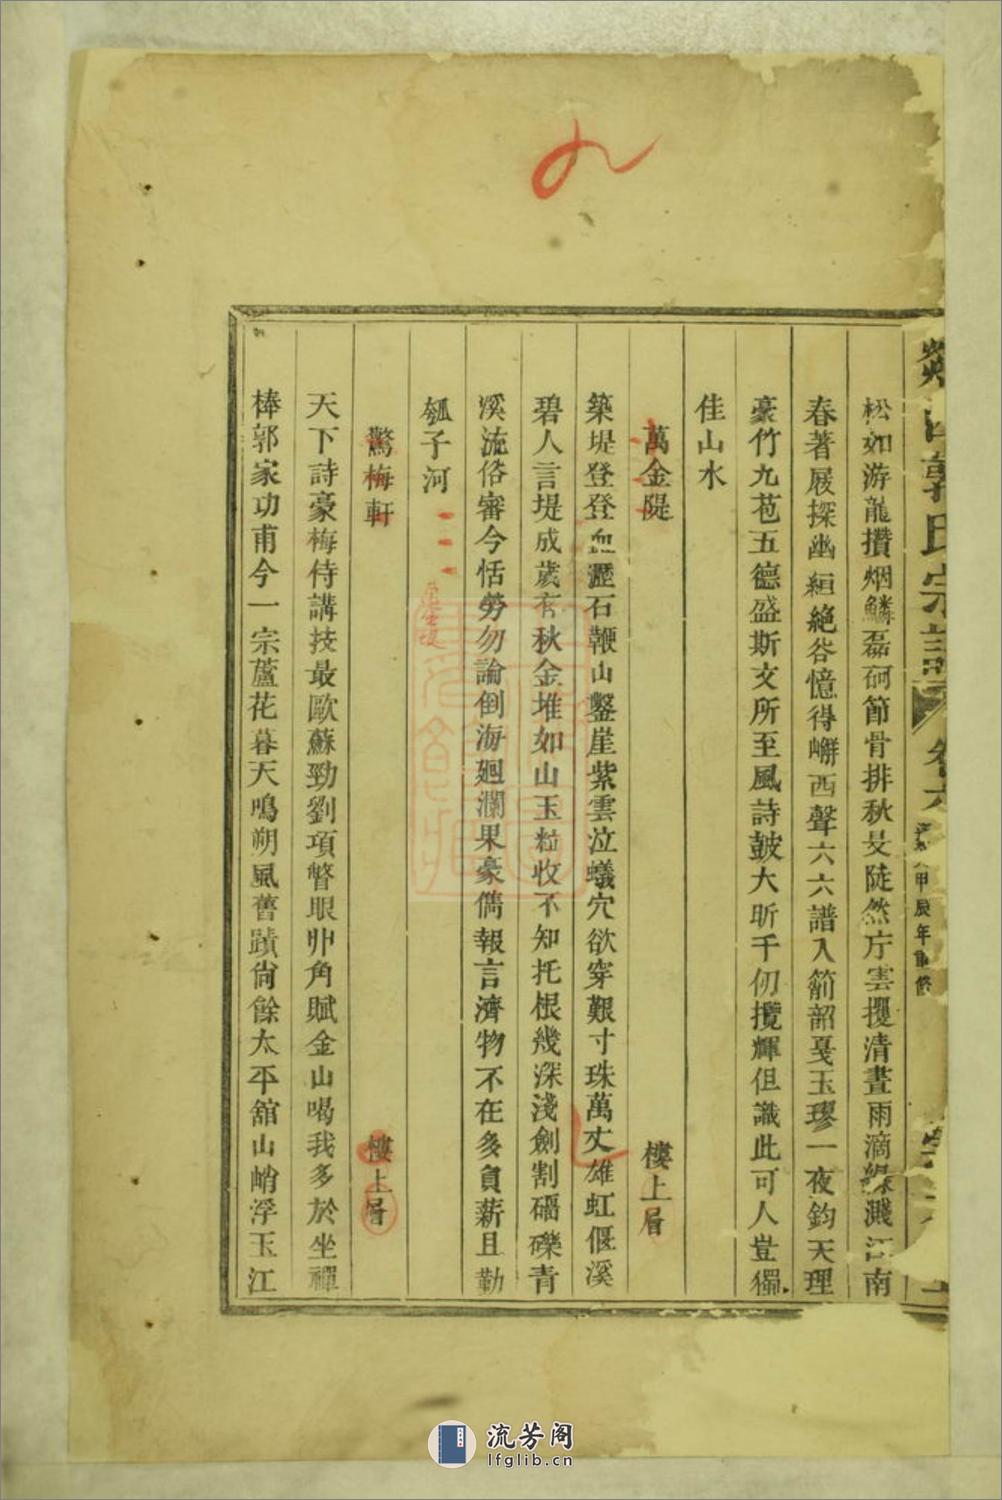 郭氏宗譜
卷六
甲辰年重修
松如游龍攢烟鱗磊砢節骨排秋旻陡然庁雲擾清晝雨滴綠濺江南
春著屐探幽絙絶谷憶得嶰西聲六六譜入箾韶戛玉璆一夜鈞天理
豪竹九苞五德盛斯文所至風詩鼓大昕千仞攬輝但識此可人豈獨
佳山水
萬金隄 樓上層
築堤登登血瀝石鞭山鑿崖紫雲泣蟻穴欲穿艱寸珠萬丈雄虹偃溪
碧人言堤成歲有秋金堆如山玉粒收不知托根幾深淺劍割礧礫青
溪流俗審今恬勞勿論倒海廻瀾果豪儁報言濟物不在多負薪且勤
瓠子河
驚梅軒 樓上層
天下詩豪梅侍講技最歐蘇勁劉項瞥眼丱角賦金山喝我多於坐禪
棒郭家功甫今一宗蘆花暮天鳴朔風舊蹟尙餘太平舘山峭浮玉江
流芳阁
lfglib.cn